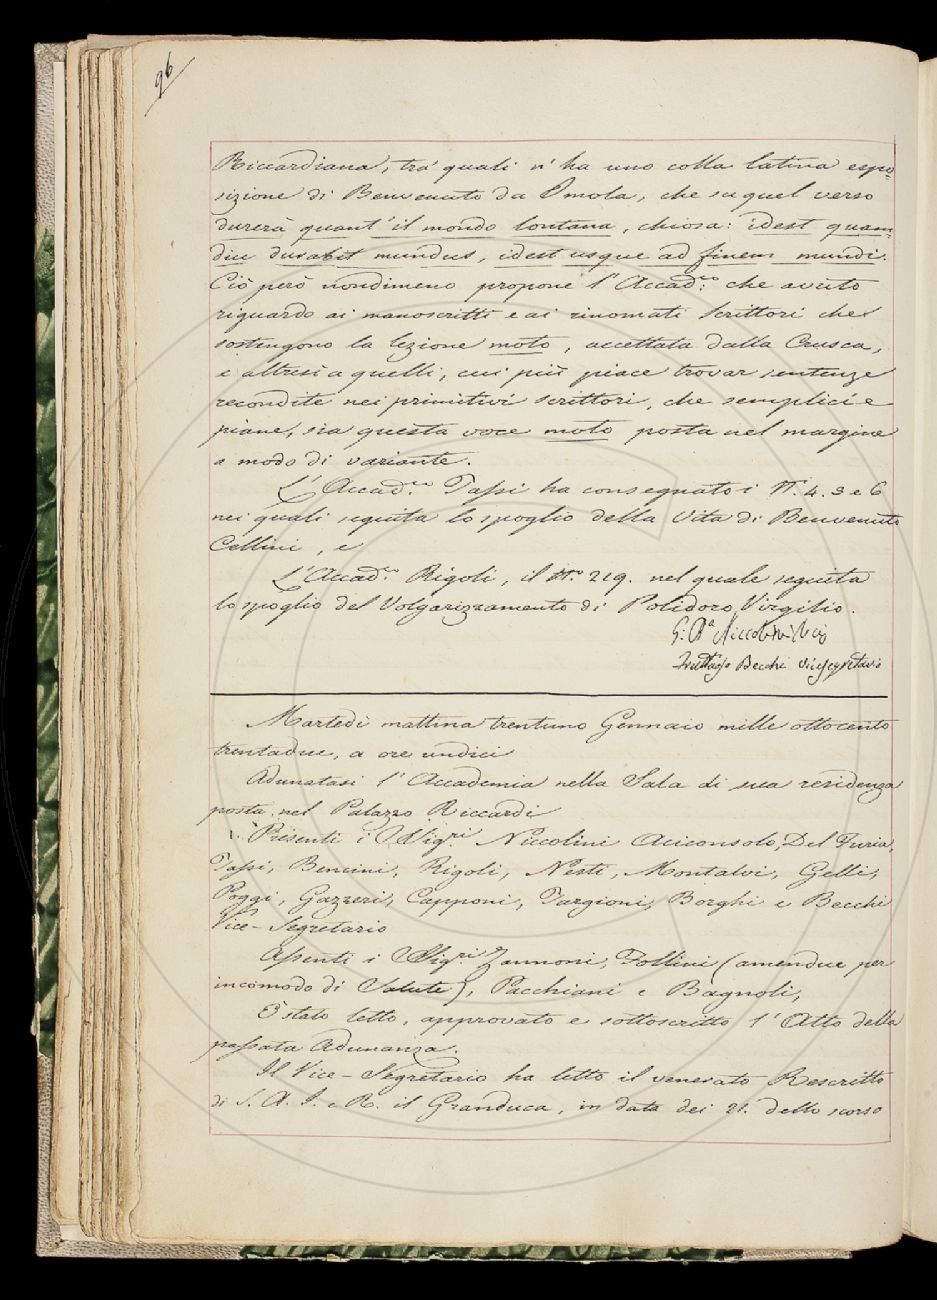 96
Riccardiana, tra' quali v'ha uno colla latina espo-
sizione di Benvenuto da Imola, che su quel verso
durerà quant' il mondo lontana, chiosa: idest quam-
diu durabit mundus, idest usque ad finem mundi.
Ciò però nondimeno propone l'Accad.co che avuto
riguardo ai manoscritti e ai rinomati Scrittori che
sostengono la lezione moto, accettata dalla Crusca,
e altresì a quelli, cui più piace trovar sentenze
recondite nei primitivi scrittori, che semplici e
piane, sia questa voce moto posta nel margine
a modo di variante.
L'Accad.co Tassi ha consegnato i N.i 4. 5 e 6
nei quali seguita lo spoglio della Vita di Benvenuto
Cellini, e
L'Accad.co Rigoli, il N.o 219. nel quale seguita
lo spoglio del Volgarizzamento di Polidoro Virgilio.
G: B.a Niccolini
Fruttuoso Becchi Vicesegretario
Martedì mattina trentuno Gennaio mille ottocento
trentadue, a ore undici
Adunatasi l'Accademia nella Sala di sua residenza
posta nel Palazzo Riccardi
Presenti i SSig.ri Niccolini Arciconsolo, Del Furia,
Tassi, Bencini, Rigoli, Nesti, Montalvi, Gelli,
Poggi, Gazzeri, Capponi, Targioni, Borghi e Becchi
Vice-Segretario
Assenti i SSig.ri Zannoni, Follini (amendue per
incomodo di Salute), Pacchiani e Bagnoli,
È stato letto, approvato e sottoscritto l'Atto della
passata Adunanza.
Il Vice-Segretario ha letto il venerato Rescritto
di S. A. I. e R. il Granduca, in data dei 21. dello scorso